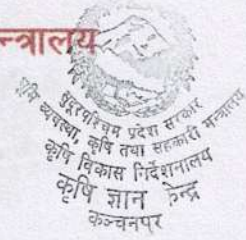 न्त्रालय
सुदूरपश्चिम प्रदेश सरकार
भूमि व्यवस्था, कृषि तथा सहकारी मन्त्रालय
कृषि विकास निर्देशनालय
कृषि ज्ञान केन्द्र
कञ्चनपुर